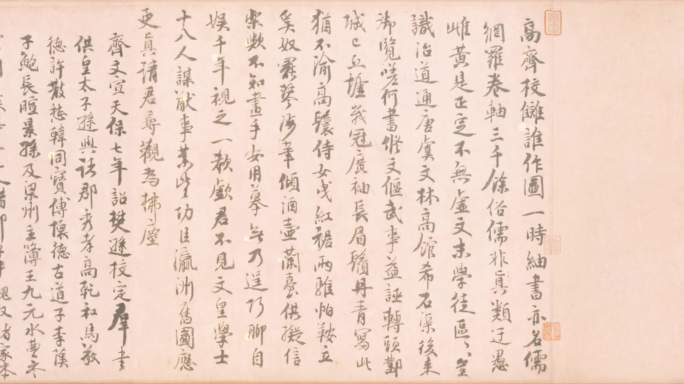 高齊校讎誰作圖一時紬書亦名儒
網羅卷軸三千餘俗儒非真類迂愚
雌黃是正定不無虛文末學徒區〻豈
識治道通唐虞文林高館希石渠後來
御覽嗟何書脩文偃武事益誣轉頭鄴
城已丘墟峩冠廣袖長眉鬚丹青寫此
猶不渝高鬟侍女曳紅裾兩騅帕鞍立
奚奴罷琴涉筆傾酒壺蘭臺供擬信
樂歟不知畫手安用摹無乃逞巧聊自
娛千年視之一欷歔君不見文皇學士
十八人謀猷事業皆功臣瀛洲舊圖應
更真請君尋觀為拂塵
齊文宣天保七年詔樊遜校定群書
供皇太子遜與諸郎秀孝高乾和馬敬
德許散愁韓同寶傅懷德古道子李漢
子鮑長暄景孫及梁州主簿王九元水曹參